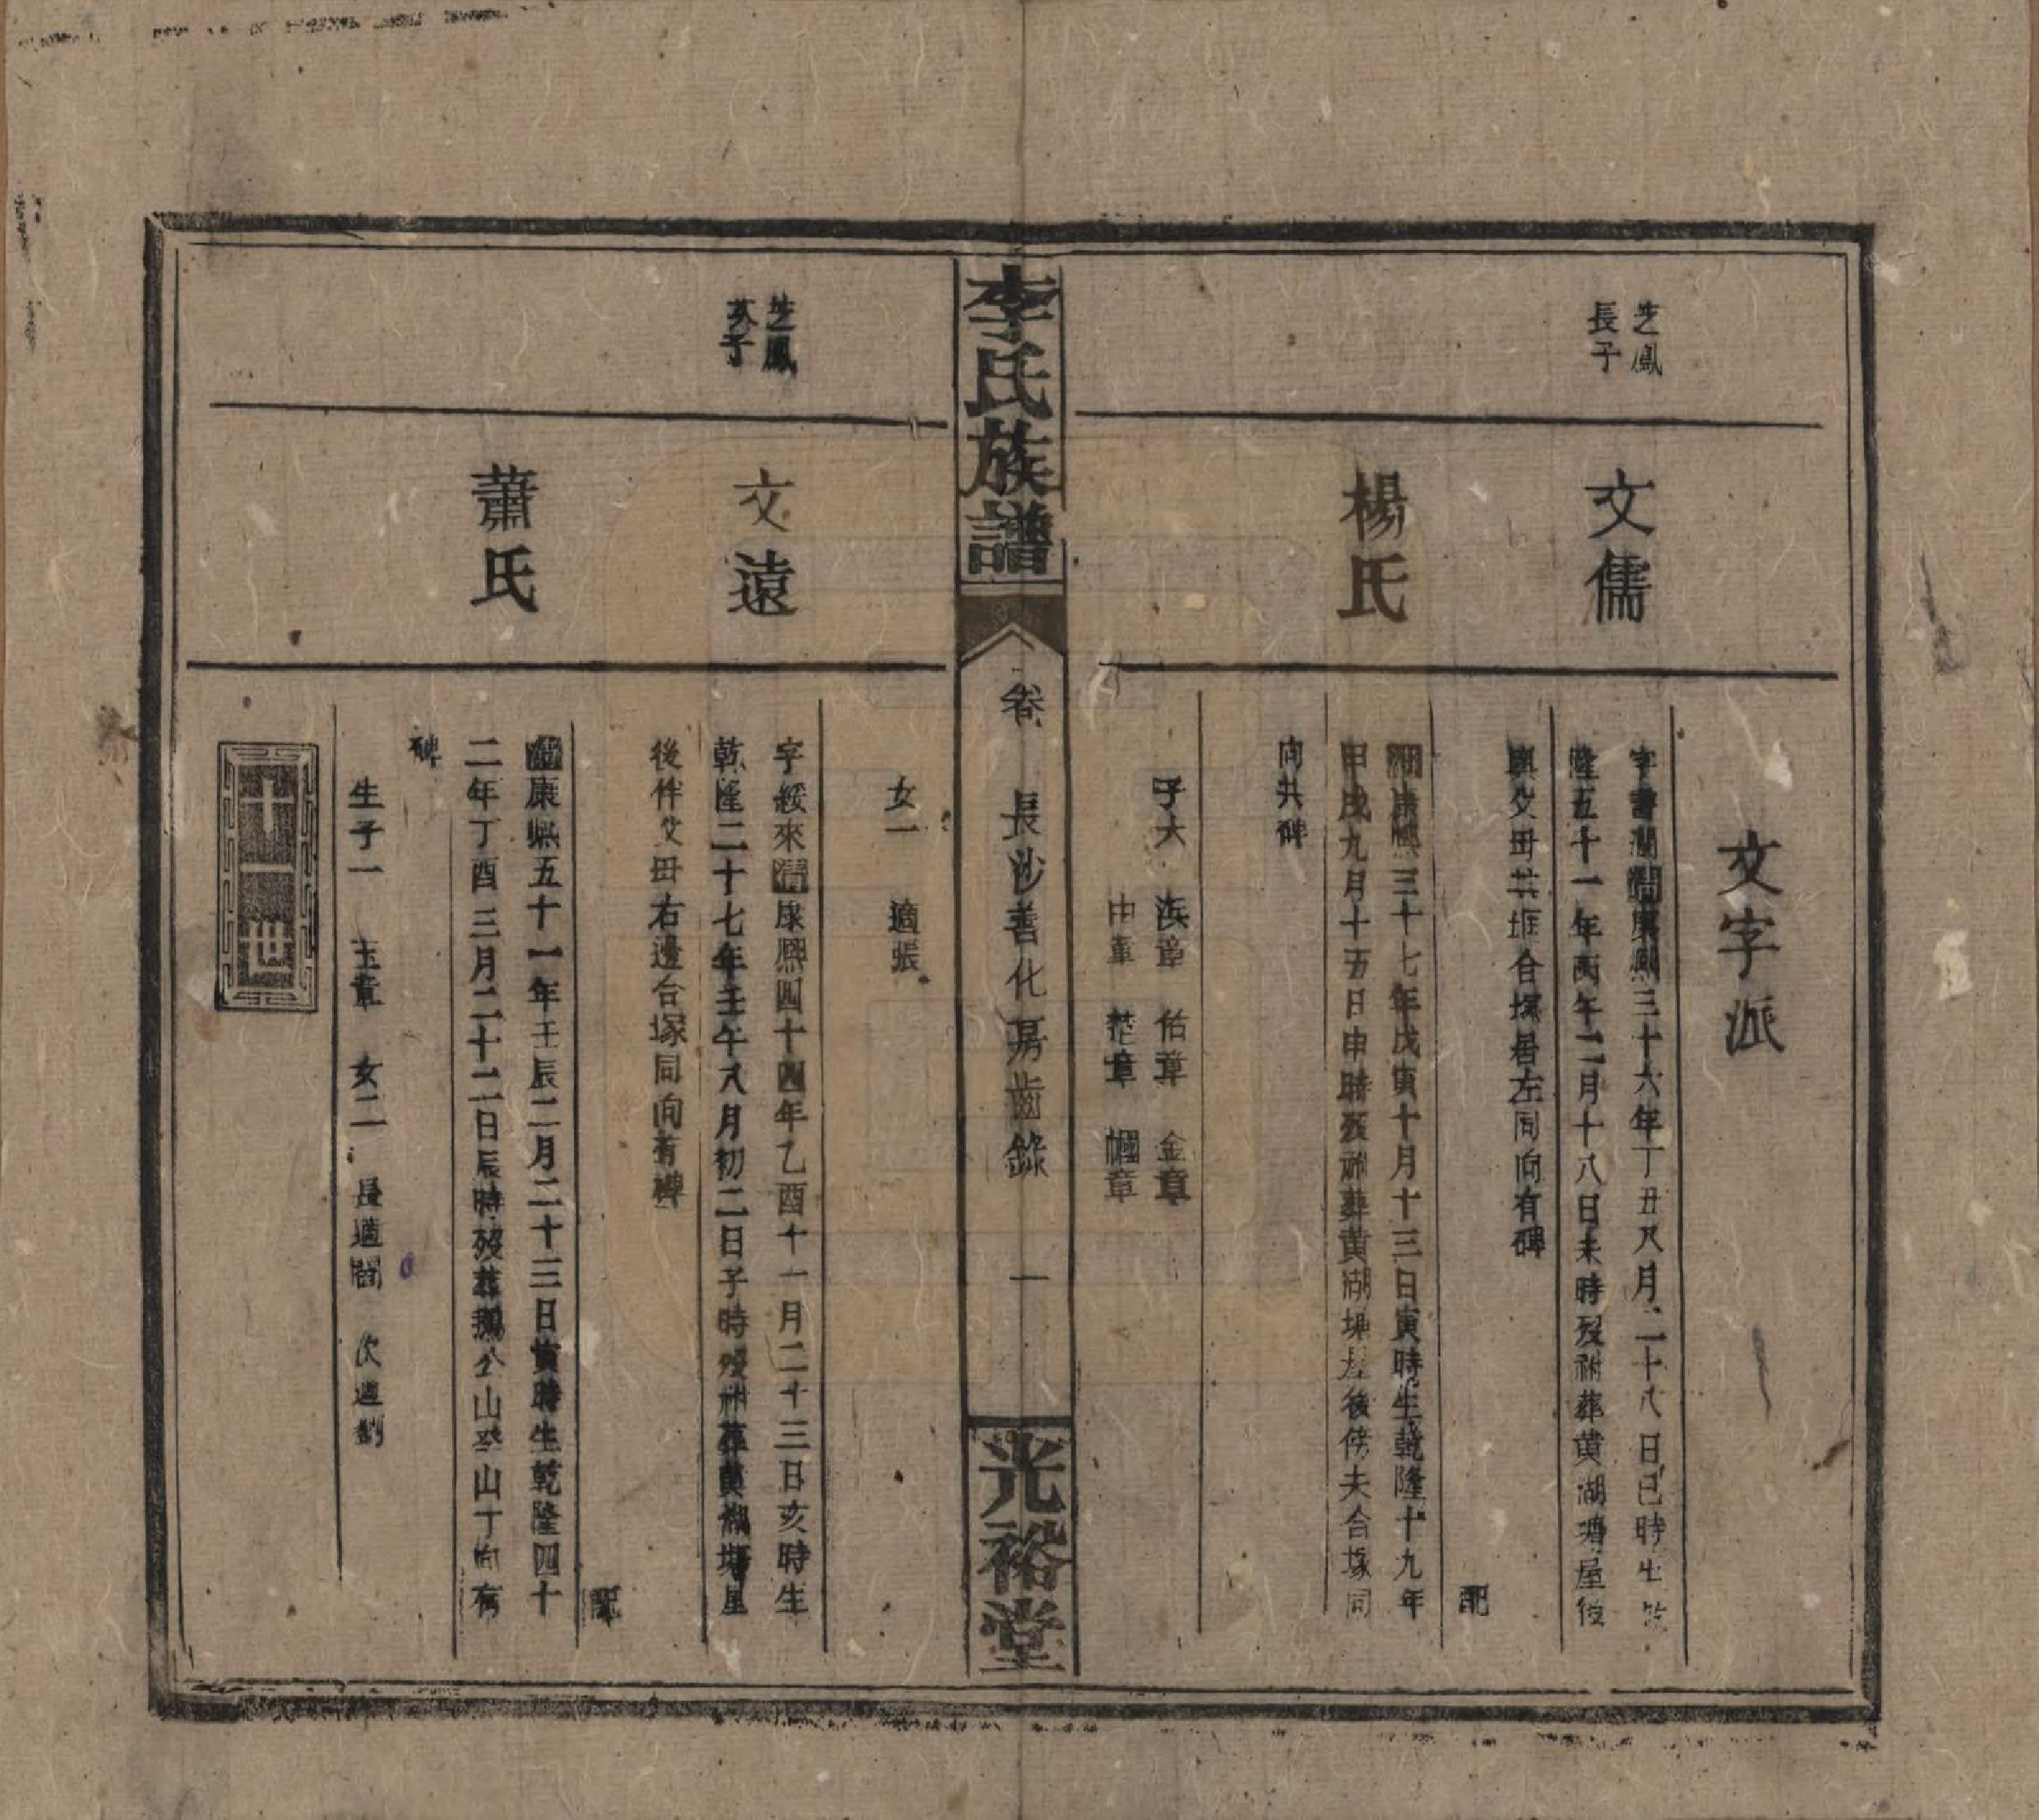 文字派
芝鳳
長子
文儒
字書圃清康熙三十六年丁丑又月二十八日巳時生乾
隆五十一年丙午二月十八日未時歿祔葬黃湖塘屋後
與父母共堆合塚居左同向有碑
配
楊氏
清康熙三十七年戊寅十月十三日寅時生乾隆十九年
甲戌九月十五日申時歿祔葬黃湖塘屋後傍夫合塚同
向共碑
子六 浜章 佑章 金章
中章 楚章 幗章
女一 適張
李氏族譜
卷 長沙善化房齒錄 一
光裕堂
芝鳳
次子
文遠
字綏來清康熙四十四年乙酉十一月二十三日亥時生
乾隆二十七年壬午八月初二日子時歿祔葬黃湖塘屋
後伴父母右邊合塚同向有碑
配
蕭氏
清康熙五十一年壬辰二月二十三日寅時生乾隆四十
二年丁酉三月二十二日辰時歿葬公山山丁向有
碑
生子一 玉章 女二 長適閻 次適劉
十一世